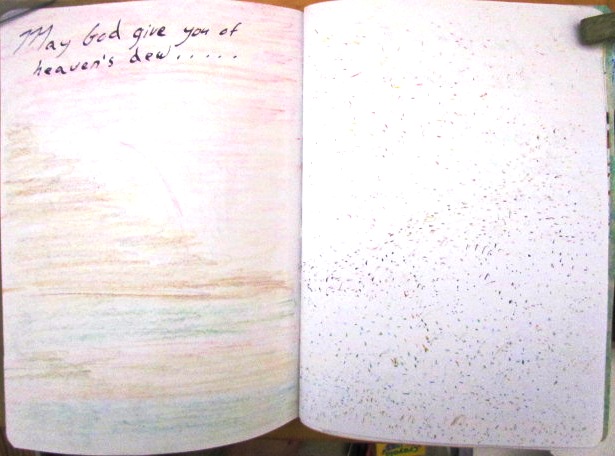 May God give you of
heaven's dew.....